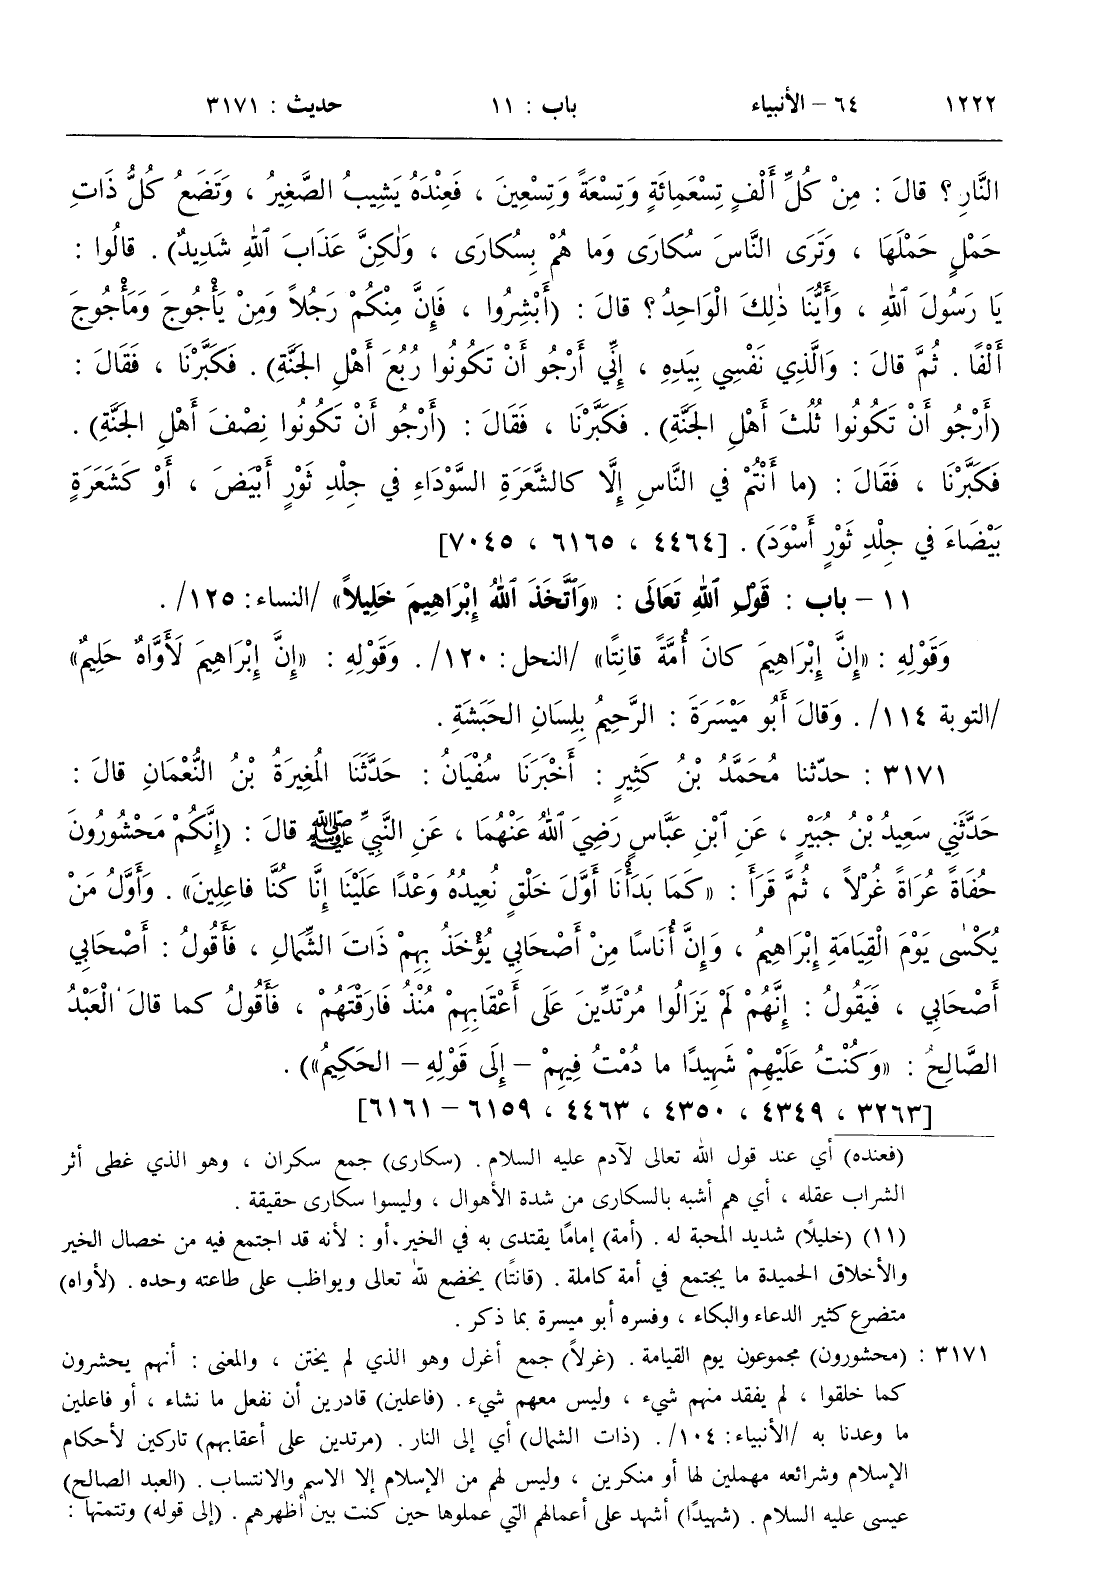 ١٢٢٢ ٦٤ – الأنبياء باب : ١١ حديث : ٣١٧١
النَّارِ ؟ قالَ : مِنْ كُلِّ أَلْفٍ تِسْعَمِائَةٍ وَتِسْعَةً وَتِسْعِينَ ، فَعِنْدَهُ يَشِيبُ الصَّغِيرُ ، وَتَضَعُ كُلُّ ذَاتِ
حَمْلٍ حَمْلَهَا ، وَتَرَى النَّاسَ سُكارَى وَما هُمْ بِسُكارَى ، وَلٰكِنَّ عَذَابَ ٱللهِ شَدِيدٌ) . قالُوا :
يَا رَسُولَ ٱللهِ ، وَأَيُّنَا ذٰلِكَ الْوَاحِدُ ؟ قالَ : (أَبْشِرُوا ، فَإِنَّ مِنْكُمْ رَجُلاً وَمِنْ يَأْجُوجَ وَمَأْجُوجَ
أَلْفًا . ثُمَّ قالَ : وَالَّذِي نَفْسِي بِيَدِهِ ، إِنِّي أَرْجُو أَنْ تَكُونُوا رُبُعَ أَهْلِ الجَنَّةِ) . فَكَبَّرْنَا ، فَقَالَ :
(أَرْجُو أَنْ تَكُونُوا ثُلُثَ أَهْلِ الجَنَّةِ) . فَكَبَّرْنَا ، فَقَالَ : (أَرْجُو أَنْ تَكُونُوا نِصْفَ أَهْلِ الجَنَّةِ) .
فَكَبَّرْنَا ، فَقَالَ : (ما أَنْتُمْ في النَّاسِ إِلَّا كالشَّعَرَةِ السَّوْدَاءِ في جِلْدِ ثَوْرٍ أَبْيَضَ ، أَوْ كَشَعَرَةٍ
بَيْضَاءَ في جِلْدِ ثَوْرٍ أَسْوَدَ) . [٤٤٦٤ ، ٦١٦٥ ، ٧٠٤٥]
١١ – باب : قَوْلِ ٱللهِ تَعَالَى : «وَٱتَّخَذَ ٱللهُ إِبْرَاهِيمَ خَلِيلاً» /النساء: ١٢٥/ .
وَقَوْلِهِ : «إِنَّ إِبْرَاهِيمَ كانَ أُمَّةً قانِتًا» /النحل: ١٢٠/. وَقَوْلِهِ : «إِنَّ إِبْرَاهِيمَ لَأَوَّاهٌ حَلِيمٌ»
/التوبة ١١٤/ . وَقالَ أَبُو مَيْسَرَةَ : الرَّحِيمُ بِلِسَانِ الحَبَشَةِ .
٣١٧١ : حدّثنا مُحَمَّدُ بْنُ كَثِيرٍ : أَخْبَرَنَا سُفْيَانُ : حَدَّثَنَا المُغِيرَةُ بْنُ النُّعْمَانِ قالَ :
حَدَّثَنِي سَعِيدُ بْنُ جُبَيْرٍ ، عَنِ ٱبْنِ عَبَّاسٍ رَضِيَ ٱللهُ عَنْهُمَا ، عَنِ النَّبِيِّ ﷺ قالَ : (إِنَّكُمْ مَحْشُورُونَ
حُفَاةً عُرَاةً غُرْلاً ، ثُمَّ قَرَأَ : «كَمَا بَدَأْنَا أَوَّلَ خَلْقٍ نُعِيدُهُ وَعْدًا عَلَيْنَا إِنَّا كُنَّا فاعِلِينَ» . وَأَوَّلُ مَنْ
يُكْسٰى يَوْمَ الْقِيَامَةِ إِبْرَاهِيمُ ، وَإِنَّ أُنَاسًا مِنْ أَصْحَابِي يُؤْخَذُ بِهِمْ ذَاتَ الشِّمَالِ ، فَأَقُولُ : أَصْحَابِي
أَصْحَابِي ، فَيَقُولُ : إِنَّهُمْ لَمْ يَزَالُوا مُرْتَدِّينَ عَلَى أَعْقَابِهِمْ مُنْذُ فَارَقْتَهُمْ ، فَأَقُولُ كما قالَ الْعَبْدُ
الصَّالِحُ : «وَكُنْتُ عَلَيْهِمْ شَهِيدًا ما دُمْتُ فِيهِمْ – إِلَى قَوْلِهِ – الحَكِيمُ») .
[٣٢٦٣ ، ٤٣٤٩ ، ٤٣٥٠ ، ٤٤٦٣ ، ٦١٥٩ – ٦١٦١]
(فعنده) أي عند قول الله تعالى لآدم عليه السلام . (سكارى) جمع سكران ، وهو الذي غطى أثر
الشراب عقله ، أي هم أشبه بالسكارى من شدة الأهوال ، وليسوا سكارى حقيقة .
(١١) (خليلاً) شديد المحبة له . (أمة) إمامًا يقتدى به في الخير . أو : لأنه قد اجتمع فيه من خصال الخير
والأخلاق الحميدة ما يجتمع في أمة كاملة . (قانتًا) يخضع لله تعالى ويواظب على طاعته وحده . (لأواه)
متضرع كثير الدعاء والبكاء ، وفسره أبو ميسرة بما ذكر .
٣١٧١ : (محشورون) مجموعون يوم القيامة . (غرلاً) جمع أغرل وهو الذي لم يختن ، والمعنى : أنهم يحشرون
كما خلقوا ، لم يفقد منهم شيء ، وليس معهم شيء . (فاعلين) قادرين أن نفعل ما نشاء ، أو فاعلين
ما وعدنا به /الأنبياء: ١٠٤/. (ذات الشمال) أي إلى النار . (مرتدين على أعقابهم) تاركين لأحكام
الإسلام وشرائعه مهملين لها أو منكرين ، وليس لهم من الإسلام إلا الاسم والانتساب . (العبد الصالح)
عيسى عليه السلام . (شهيدًا) أشهد على أعمالهم التي عملوها حين كنت بين أظهرهم . (إلى قوله) وتتمتها :